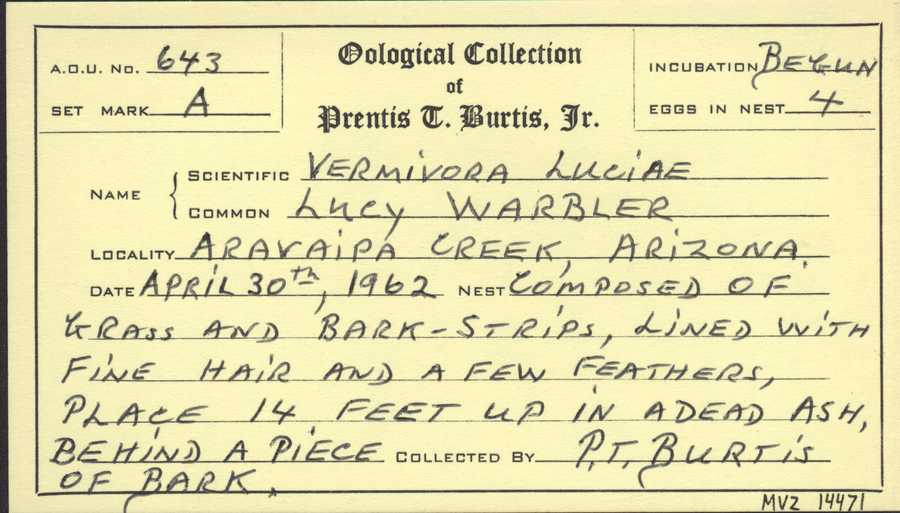 A.O.U. No. 643
SET MARK A
Oological Collection
of
Prentis T. Burtis, Jr.
INCUBATION BEGUN
EGGS IN NEST 4
NAME
SCIENTIFIC VERMIVORA LUCIAE
COMMON LUCY WARBLER
LOCALITY ARAVAIPA CREEK, ARIZONA.
DATE APRIL 30th, 1962 NEST COMPOSED OF
GRASS AND BARK-STRIPS, LINED WITH
FINE HAIR AND A FEW FEATHERS,
PLACE 14 FEET UP IN A DEAD ASH,
BEHIND A PIECE COLLECTED BY P.T. BURTIS
OF BARK.
MVZ 14471